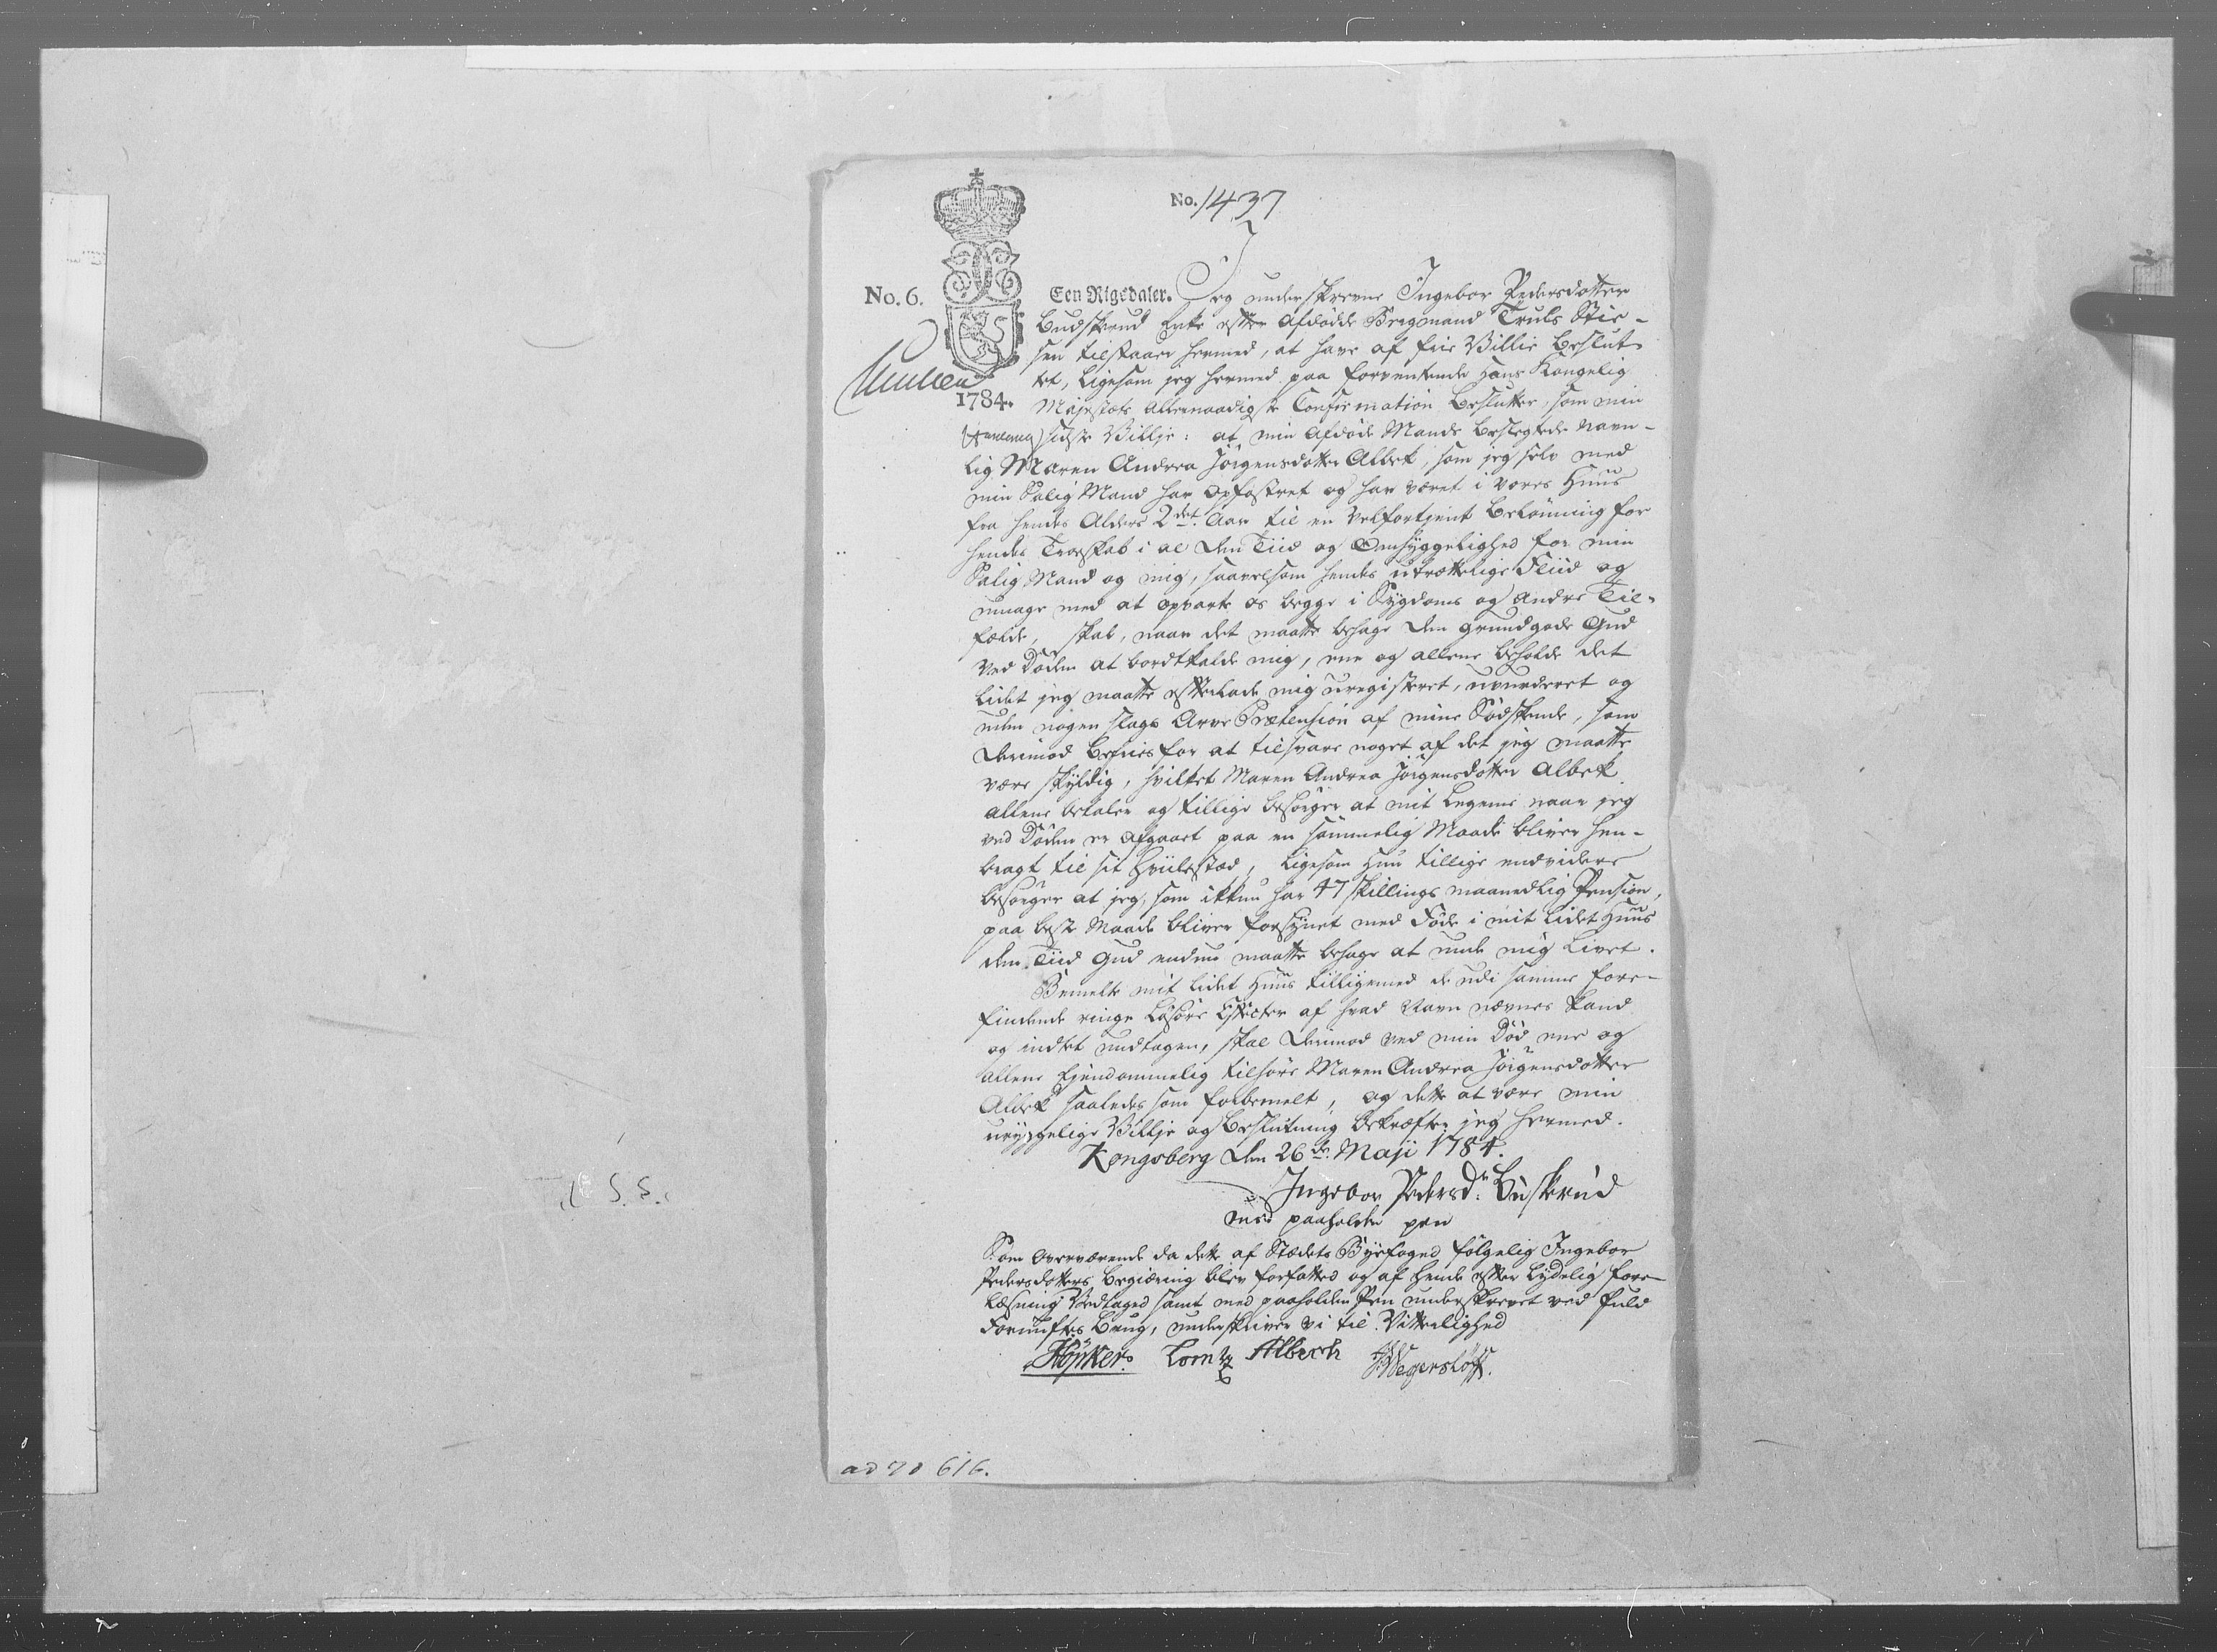 No. 1437
No. 6.
Een Rigsdaler. Jeg underskrevne Ingebor Pedersdotter
Budskerud Enke efter afdøde Bergmand Truls Stie-
sen tilstaaer hermed, at have af frie Villie besluttet
tet, ligesom jeg hermed paa forventende Hans Kongelig
1784. Majestæts allernaadigste Confirmation beslutter, som min
sidste Villje: at min afdøde Mands beslegtede navn-
lig Maren Andrea Jörgensdotter Albek, som jeg selv med
min Salig Mand har opfostret og har været i vores Huus
fra hendes Alders 2det Aar til en velfortjent Belönning for
hendes Troeskab i al den Tiid og Omhyggelighed for min
Salig Mand og mig, saavelsom hendes utrættelige Fliid og
umage med at opvarte os begge i Sygdoms og andre Til-
fælde, skal, naar det maatte behage den grundgode Gud
ved Döden at bordtkalde mig, ene og allene beholde det
lidet jeg maatte efterlade mig uregisteret, uvurderet og
uden nogen slags Arve Prætension af mine Sødskende, som
derimod befries for at tilsvare noget af det jeg maatte
være skyldig, hvilket Maren Andrea Jörgensdotter Albek
allene betaler og tillige besörger at mit Legeme naar jeg
ved Döden er afgaaet paa en sømmelig Maade bliver hen-
bragt til sit Hviilested, ligesom hun tillige endvidere
besörger at jeg, som ikkun har 47 skillings maanedlig Pension,
paa beste Maade bliver forsynet med Föde i mit lidet Huus
den Tiid Gud endnu maatte behage at unde mig Livet.
Bemelte mit lidet Huus tilligemed de udi samme fore-
findende ringe Løsøre Effecter af hvad Navn nævnes kand
og indtet undtagen, skal derimod ved min Död ene og
allene Ejendommelig tilhøre Maren Andrea Jörgensdotter
Albek saaledes som forbemelt, og dette at være min
uryggelige Villje og Beslutning bekræfter jeg hermed.
Kongsberg den 26de Maji 1784.
Ingebor Pedersdr Buskerud
med paaholden pen
Som overværende da dette af Stædets Byefoged følgelig Ingebor
Pedersdotters Begiæring blev forfatted og af hende efter lydelig fore-
læsning Vedtaged samt med paaholden Pen underskrevet ved fuld
Fornuftes brug, underskriver vi til Vitterlighed
Höyker. Lorntz Albech Wegersløff.
ad No 616.